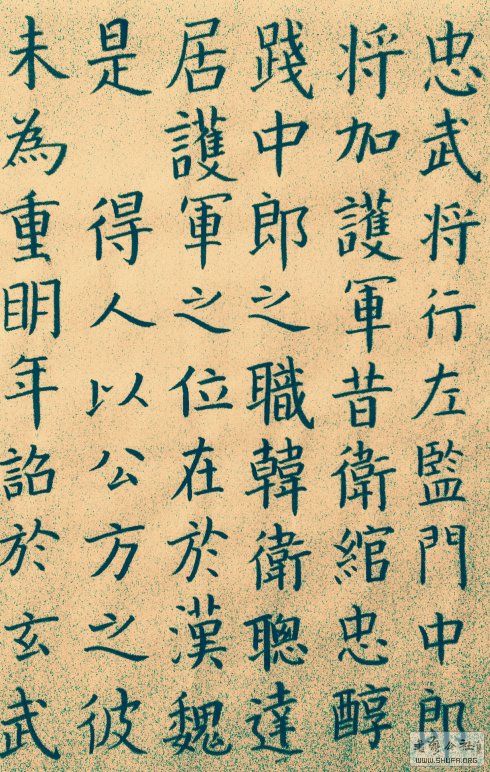 忠武将行左監門中郎
将加護軍昔衛綰忠醇
踐中郎之職韓衛聰達
居護軍之位在於漢魏
是 得人以公方之彼
未為重眀年詔於玄武
WWW.SHUFA.ORG